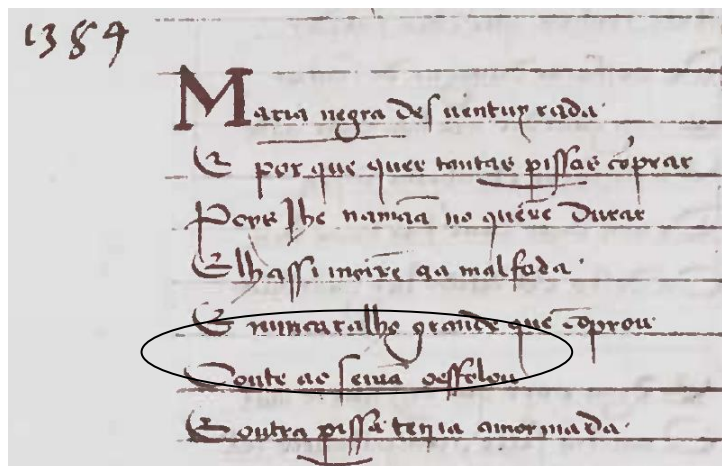 1384
Maria negra des uentuyrada
E por que quer tantas pissas cōprar
Poys lhe na māa no querē durar
E lhassi moirē aa malfada
E nuncaralho grande que cōprou
Oonte ao seirāa oeffelou
E outra pissa tenia amormada